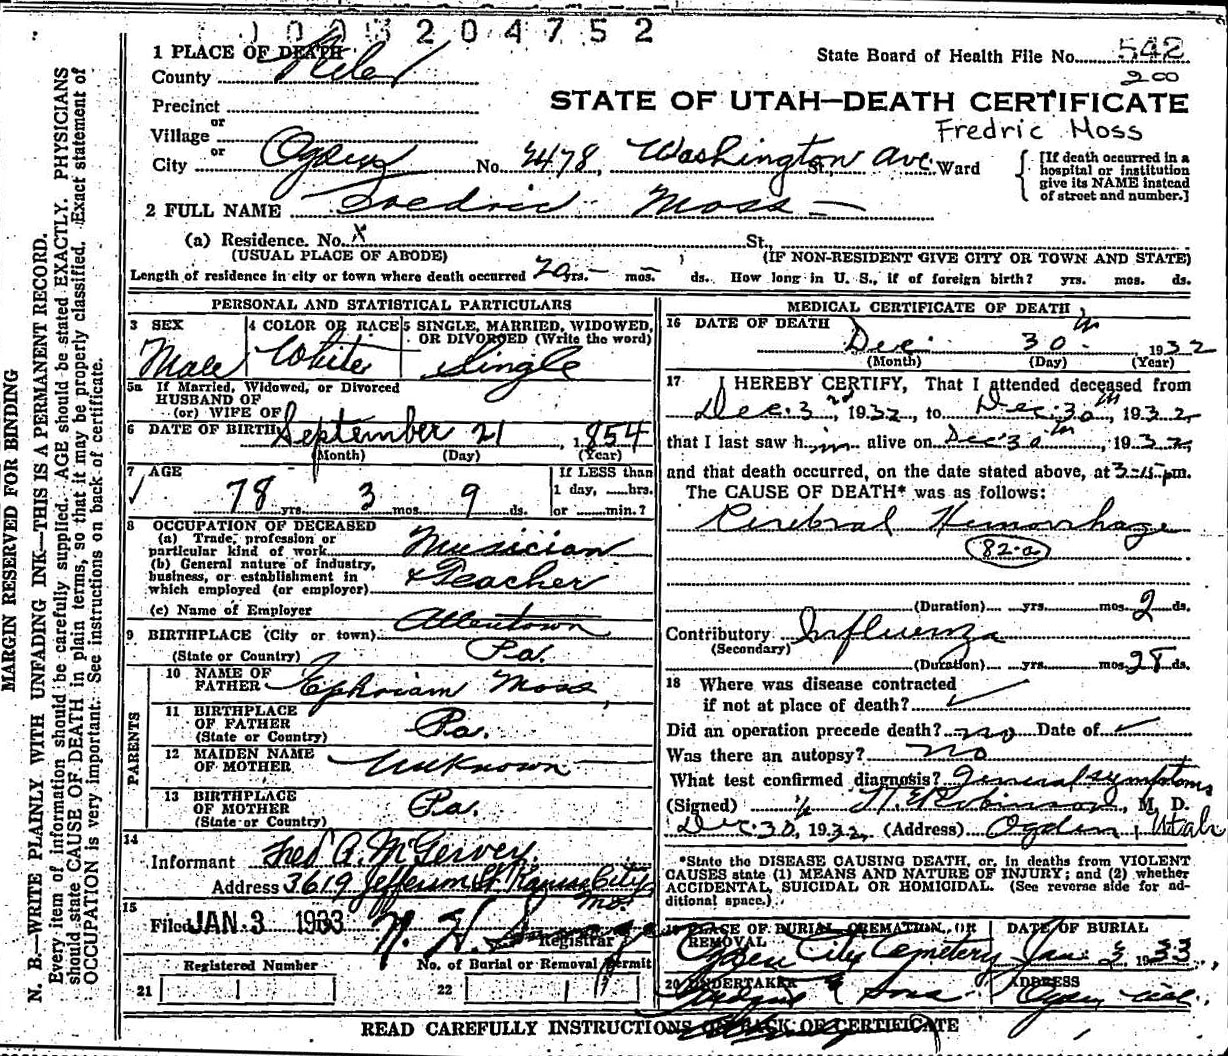 1003204752
1 PLACE OF DEATH
County Weber
State Board of Health File No. 542
200
Precinct
or
Village
or
STATE OF UTAH—DEATH CERTIFICATE
Fredric Moss
City Ogden No. 2478, Washington Ave. St., Ward
[If death occurred in a hospital or institution give its NAME instead of street and number.]
2 FULL NAME Fredric Moss
(a) Residence. No. X St.,
(USUAL PLACE OF ABODE) (IF NON-RESIDENT GIVE CITY OR TOWN AND STATE)
Length of residence in city or town where death occurred 20 yrs. — mos. ds. How long in U. S., if of foreign birth? yrs. mos. ds.
PERSONAL AND STATISTICAL PARTICULARS
3 SEX
Male
4 COLOR OR RACE
White
5 SINGLE, MARRIED, WIDOWED,
OR DIVORCED (Write the word)
Single
5a If Married, Widowed, or Divorced
HUSBAND OF
(or) WIFE OF
6 DATE OF BIRTH September 21, 1854
(Month) (Day) (Year)
7 AGE
78 yrs. 3 mos. 9 ds.
If LESS than
1 day, ......hrs.
or ........min.?
8 OCCUPATION OF DECEASED
(a) Trade, profession or
particular kind of work Musician
(b) General nature of industry,
business, or establishment in
which employed (or employer) & Teacher
(c) Name of Employer
9 BIRTHPLACE (City or town) Allentown
(State or Country) Pa.
PARENTS
10 NAME OF
FATHER Ephriam Moss
11 BIRTHPLACE
OF FATHER
(State or Country) Pa.
12 MAIDEN NAME
OF MOTHER Unknown
13 BIRTHPLACE
OF MOTHER
(State or Country) Pa.
14
Informant Fred A. McGervey.
Address 3619 Jefferson St. Kansas City
Mo.
15
Filed JAN 3 1933
Registrar
Registered Number No. of Burial or Removal Permit
21 22
MEDICAL CERTIFICATE OF DEATH
16 DATE OF DEATH
Dec. 30th 1932
(Month) (Day) (Year)
17 I HEREBY CERTIFY, That I attended deceased from
Dec. 3rd, 1932, to Dec. 30th, 1932
that I last saw him alive on Dec 30th, 1932,
and that death occurred, on the date stated above, at 3:15 pm.
The CAUSE OF DEATH* was as follows:
Cerebral Hemorrhage
82-a
(Duration) yrs. mos. 2 ds.
Contributory Influenza
(Secondary)
(Duration) yrs. mos. 28 ds.
18 Where was disease contracted
if not at place of death?
Did an operation precede death? no Date of
Was there an autopsy? no
What test confirmed diagnosis? General symptoms
(Signed) Robinson, M. D.
Dec. 30, 1932, (Address) Ogden, Utah
*State the DISEASE CAUSING DEATH, or, in deaths from VIOLENT
CAUSES state (1) MEANS AND NATURE OF INJURY; and (2) whether
ACCIDENTAL, SUICIDAL OR HOMICIDAL. (See reverse side for ad-
ditional space.)
19 PLACE OF BURIAL, CREMATION, OR
REMOVAL
Ogden City Cemetery
DATE OF BURIAL
Jan. 3, 1933,
20 UNDERTAKER
& Sons
ADDRESS
Ogden
READ CAREFULLY INSTRUCTIONS ON BACK OF CERTIFICATE
MARGIN RESERVED FOR BINDING
N. B.—WRITE PLAINLY WITH UNFADING INK—THIS IS A PERMANENT RECORD.
Every item of information should be carefully supplied. AGE should be stated EXACTLY. PHYSICIANS
should state CAUSE OF DEATH in plain terms, so that it may be properly classified. Exact statement of
OCCUPATION is very important. See instructions on back of certificate.